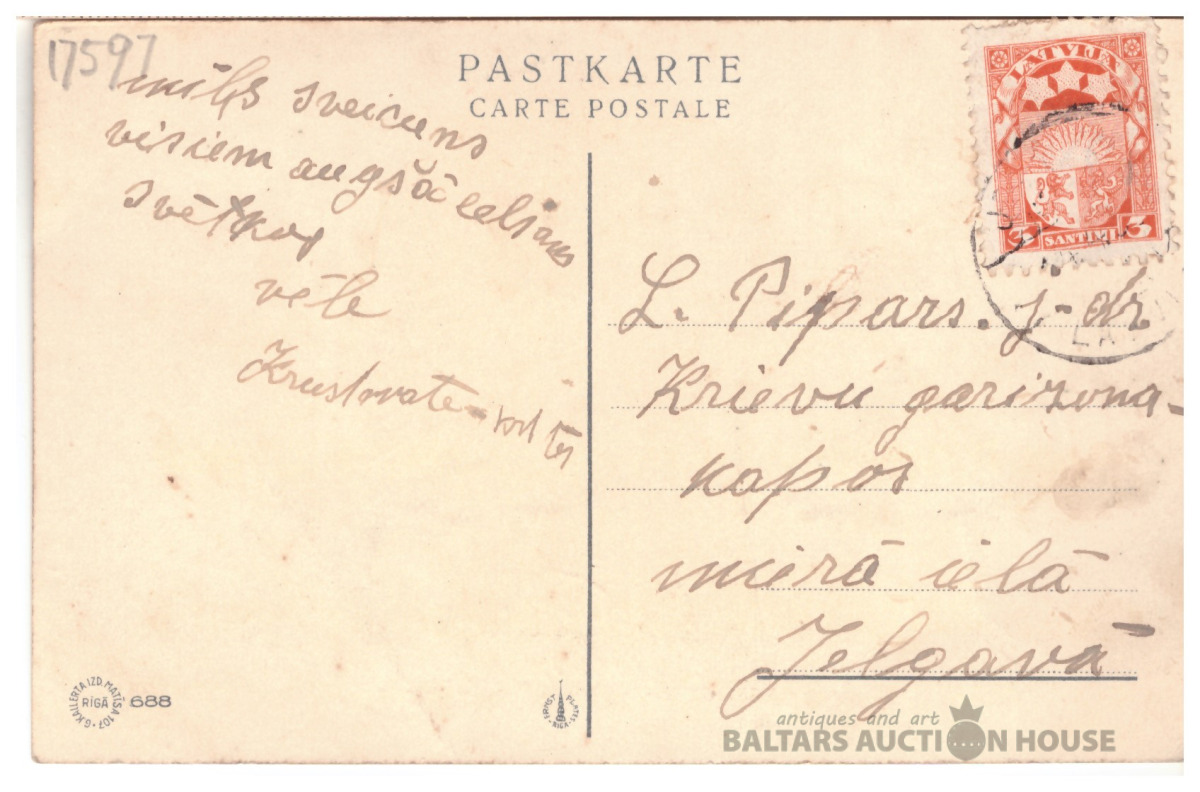 17597
PASTKARTE
CARTE POSTALE
mīļs sveiciens
visiem augšāčelšans
svētkos
vēle
LATVIJA
3 SANTIMI 3
L. Pipars. j-dz
Krievu garizona-
kapos
mierā ielā
Jelgavā
G.KALLERTA IZD. MATĪSA 107
RĪGĀ
688
antiques and art
BALTARS AUCTION HOUSE